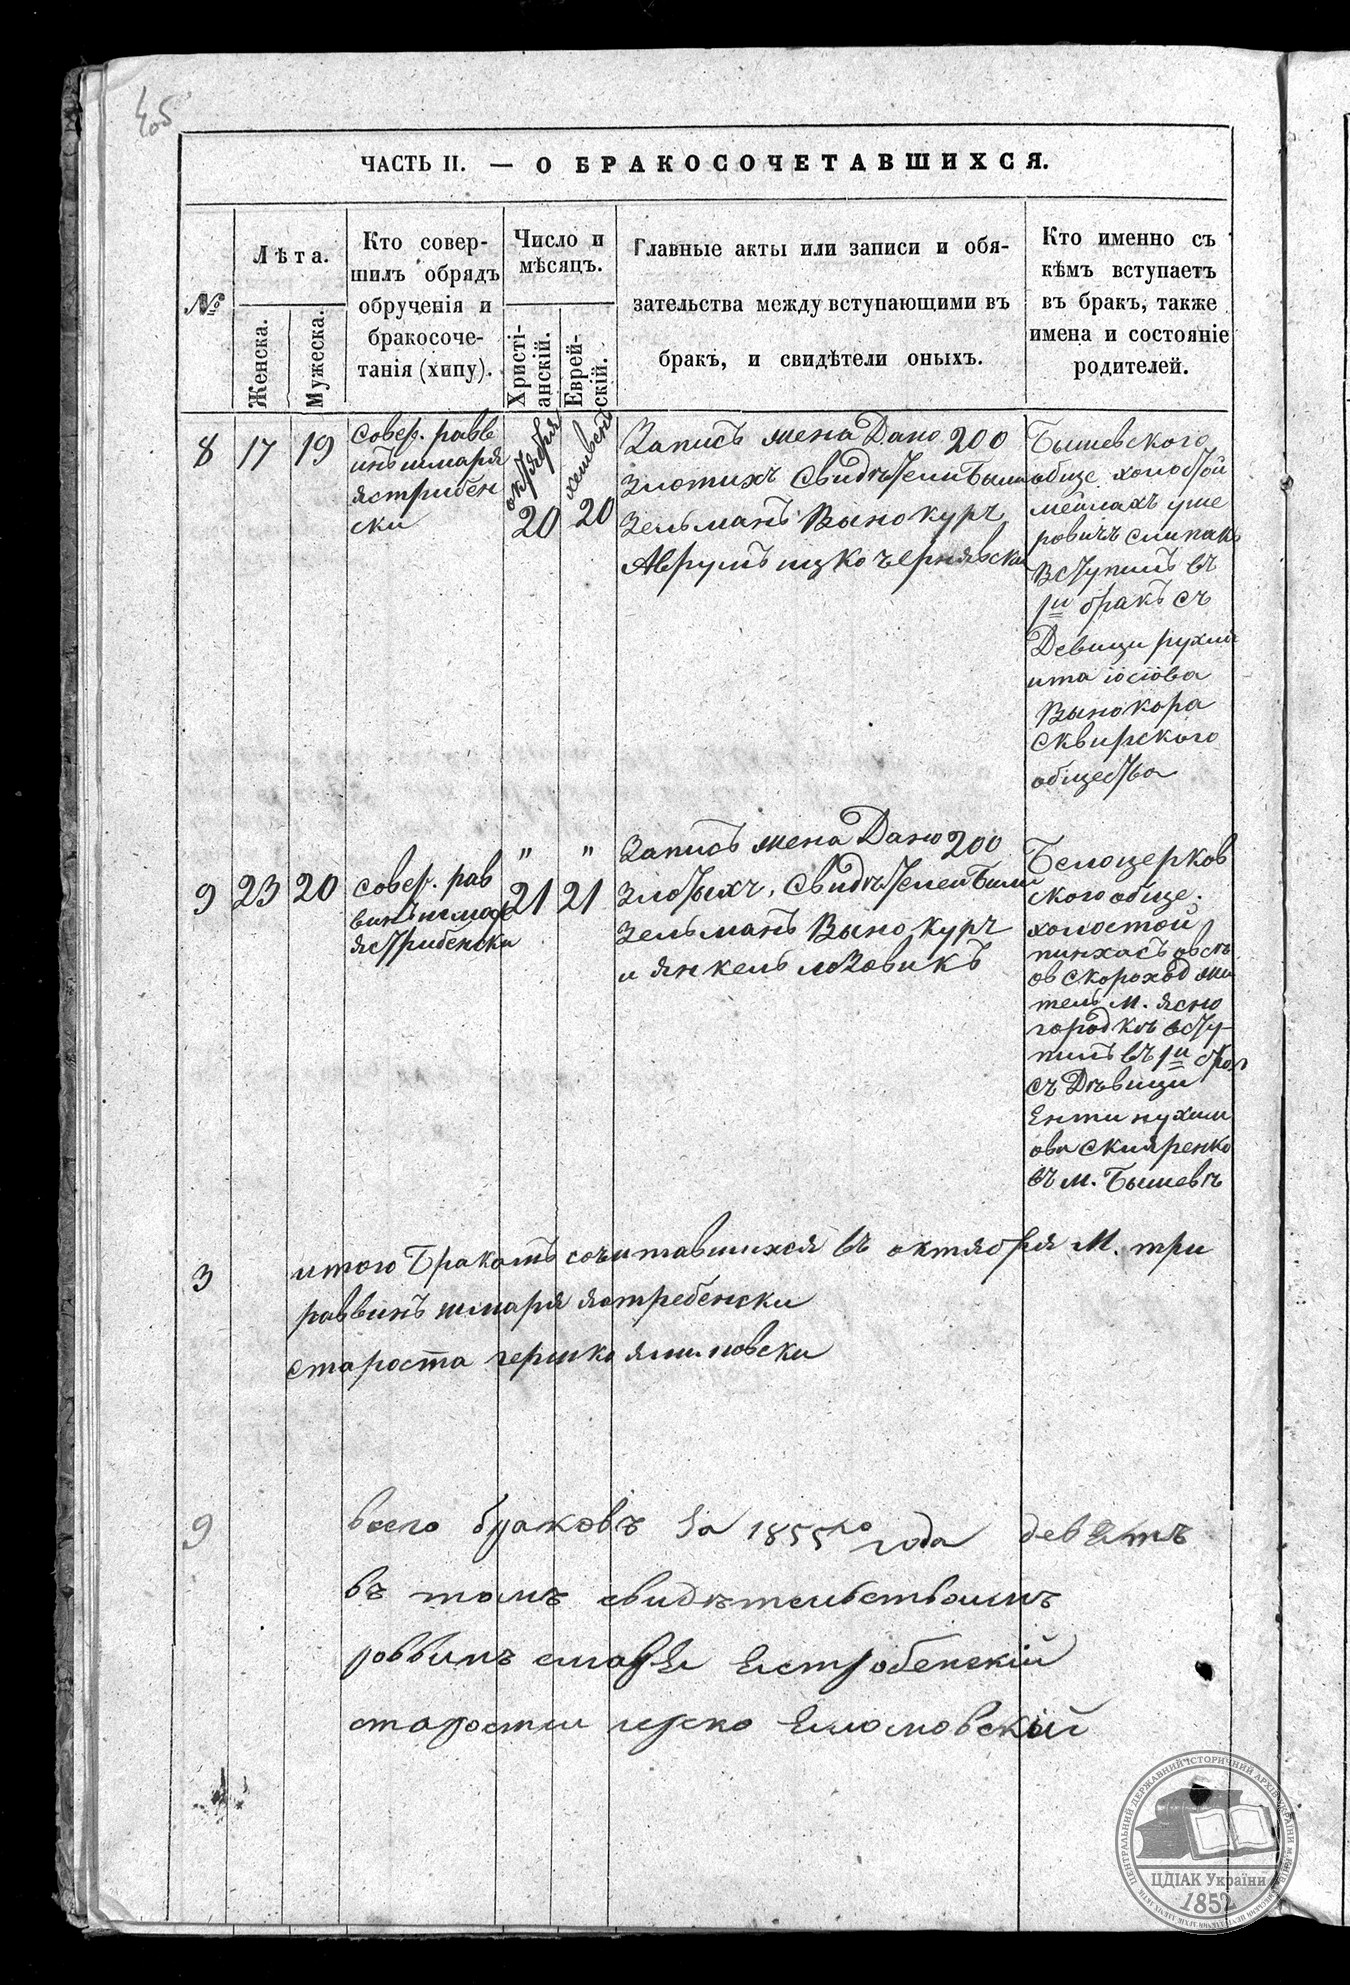 405
ЧАСТЬ II. — О БРАКОСОЧЕТАВШИХСЯ.
№
Лѣта.
Женска.
Мужеска.
Кто совер-
шилъ обрядъ
обрученія и
бракосоче-
танія (хипу).
Число и
мѣсяцъ.
Христі-
анскій.
Еврей-
скій.
Главные акты или записи и обя-
зательства между вступающими въ
бракъ, и свидѣтели оныхъ.
Кто именно съ
кѣмъ вступаетъ
въ бракъ, также
имена и состояніе
родителей.
8
17
19
совер. равв
инъ шмаря
ястрибен
ски
октября
20
хешвень
20
Запись жена Дано 200
Злотихъ Свидѣтели были
Зельманъ Винокуръ
Аврумъ ицко чернявски
Бышевского
обще. холостой
мейлахъ уше
ровичъ слипакъ
вступилъ въ
1й бракъ съ
Девици рухли
ита іосіова
Винокора
сквирского
общества
9
23
20
совер. рав
винъ шмаря
ястрибенски
"
21
"
21
Запись жена Дано 200
Злотыхъ, Свидѣтелей были
Зельманъ Винокуръ
и янкель лозовикъ
Белоцерков
ского обще.
холостой
пинхасъ овсѣ
ов скороход жи
тель м. ясно
городкѣ всту-
пилъ въ 1й брак
съ Дѣвици
Енти нухим
ова скляренко
въ м. Бышевѣ
3
итого Бракомъ сочитавшихся въ октября М. три
раввинъ шмаря ястребенски
староста гершко ялиловски
9
всего браковъ за 1855го года девять
въ томъ свидѣтельствоимъ
раввинъ смаря Естробенскій
старости герко
ЦЕНТРАЛЬНИЙ ДЕРЖАВНИЙ ІСТОРИЧНИЙ АРХІВ УКРАЇНИ М.КИЇВ
ЦДІАК України
1852